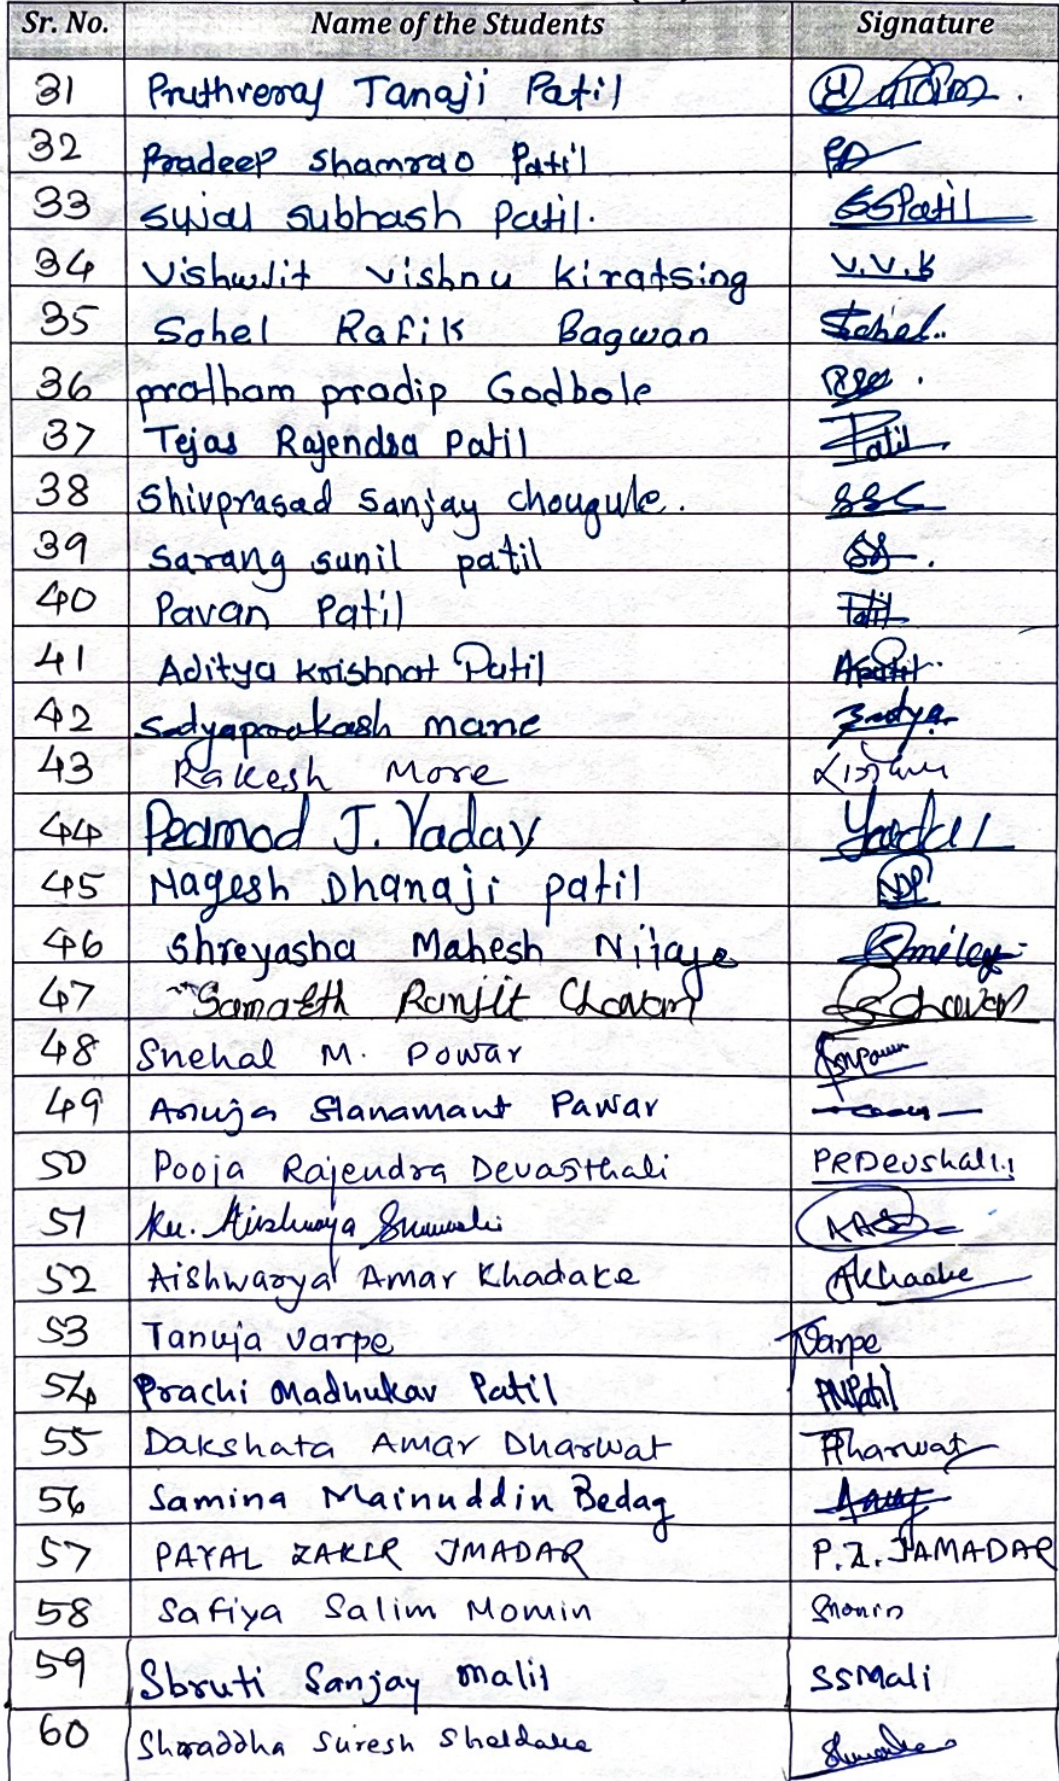 Sr. No. Name of the Students Signature
31 Pruthveeraj Tanaji Patil
32 Pradeep Shamrao Patil
33 Sujal subhash Patil. SSPatil
34 Vishwjit Vishnu kiratsing V.V.K
35 Sohel Rafik Bagwan Sohel..
36 pratham pradip Godbole
37 Tejas Rajendra Patil Patil
38 Shivprasad Sanjay chougule. SSC
39 Sarang sunil patil
40 Pavan Patil Patil
41 Aditya Krishnat Patil APatil.
42 Satyaprakash mane Satya
43 Rakesh More
44 Pramod J. Yadav Yadav
45 Nagesh Dhanaji patil NDP
46 Shreyasha Mahesh Nijaje Smiley
47 Samarth Ranjit Chavan Schavan
48 Snehal M. Powar
49 Anuja Hanamant Pawar
50 Pooja Rajendra Devasthali PRDevshali
51 Ku. Aishwarya
52 Aishwarya Amar Khadake
53 Tanuja Varpe TVarpe
54 Prachi Madhukar Patil PMPatil
55 Dakshata Amar Dharwat Dharwat
56 Samina Mainuddin Bedag
57 PAYAL ZAKIR JMADAR P.Z. JAMADAR
58 Safiya Salim Momin Smomin
59 Shruti Sanjay mali SSMali
60 Shraddha Suresh Sheldake